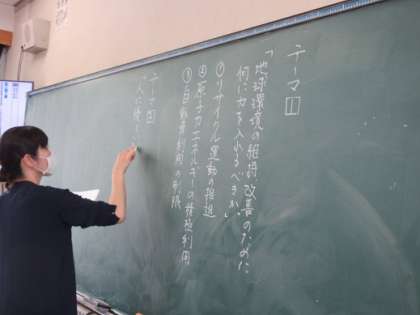 テーマ1
「地球環境の維持、改善のために
何に力を入れるべきか」
①リサイクル運動の推進
②原子力エネルギーの積極利用
③自動車利用の制限
テーマ2
「人に優し